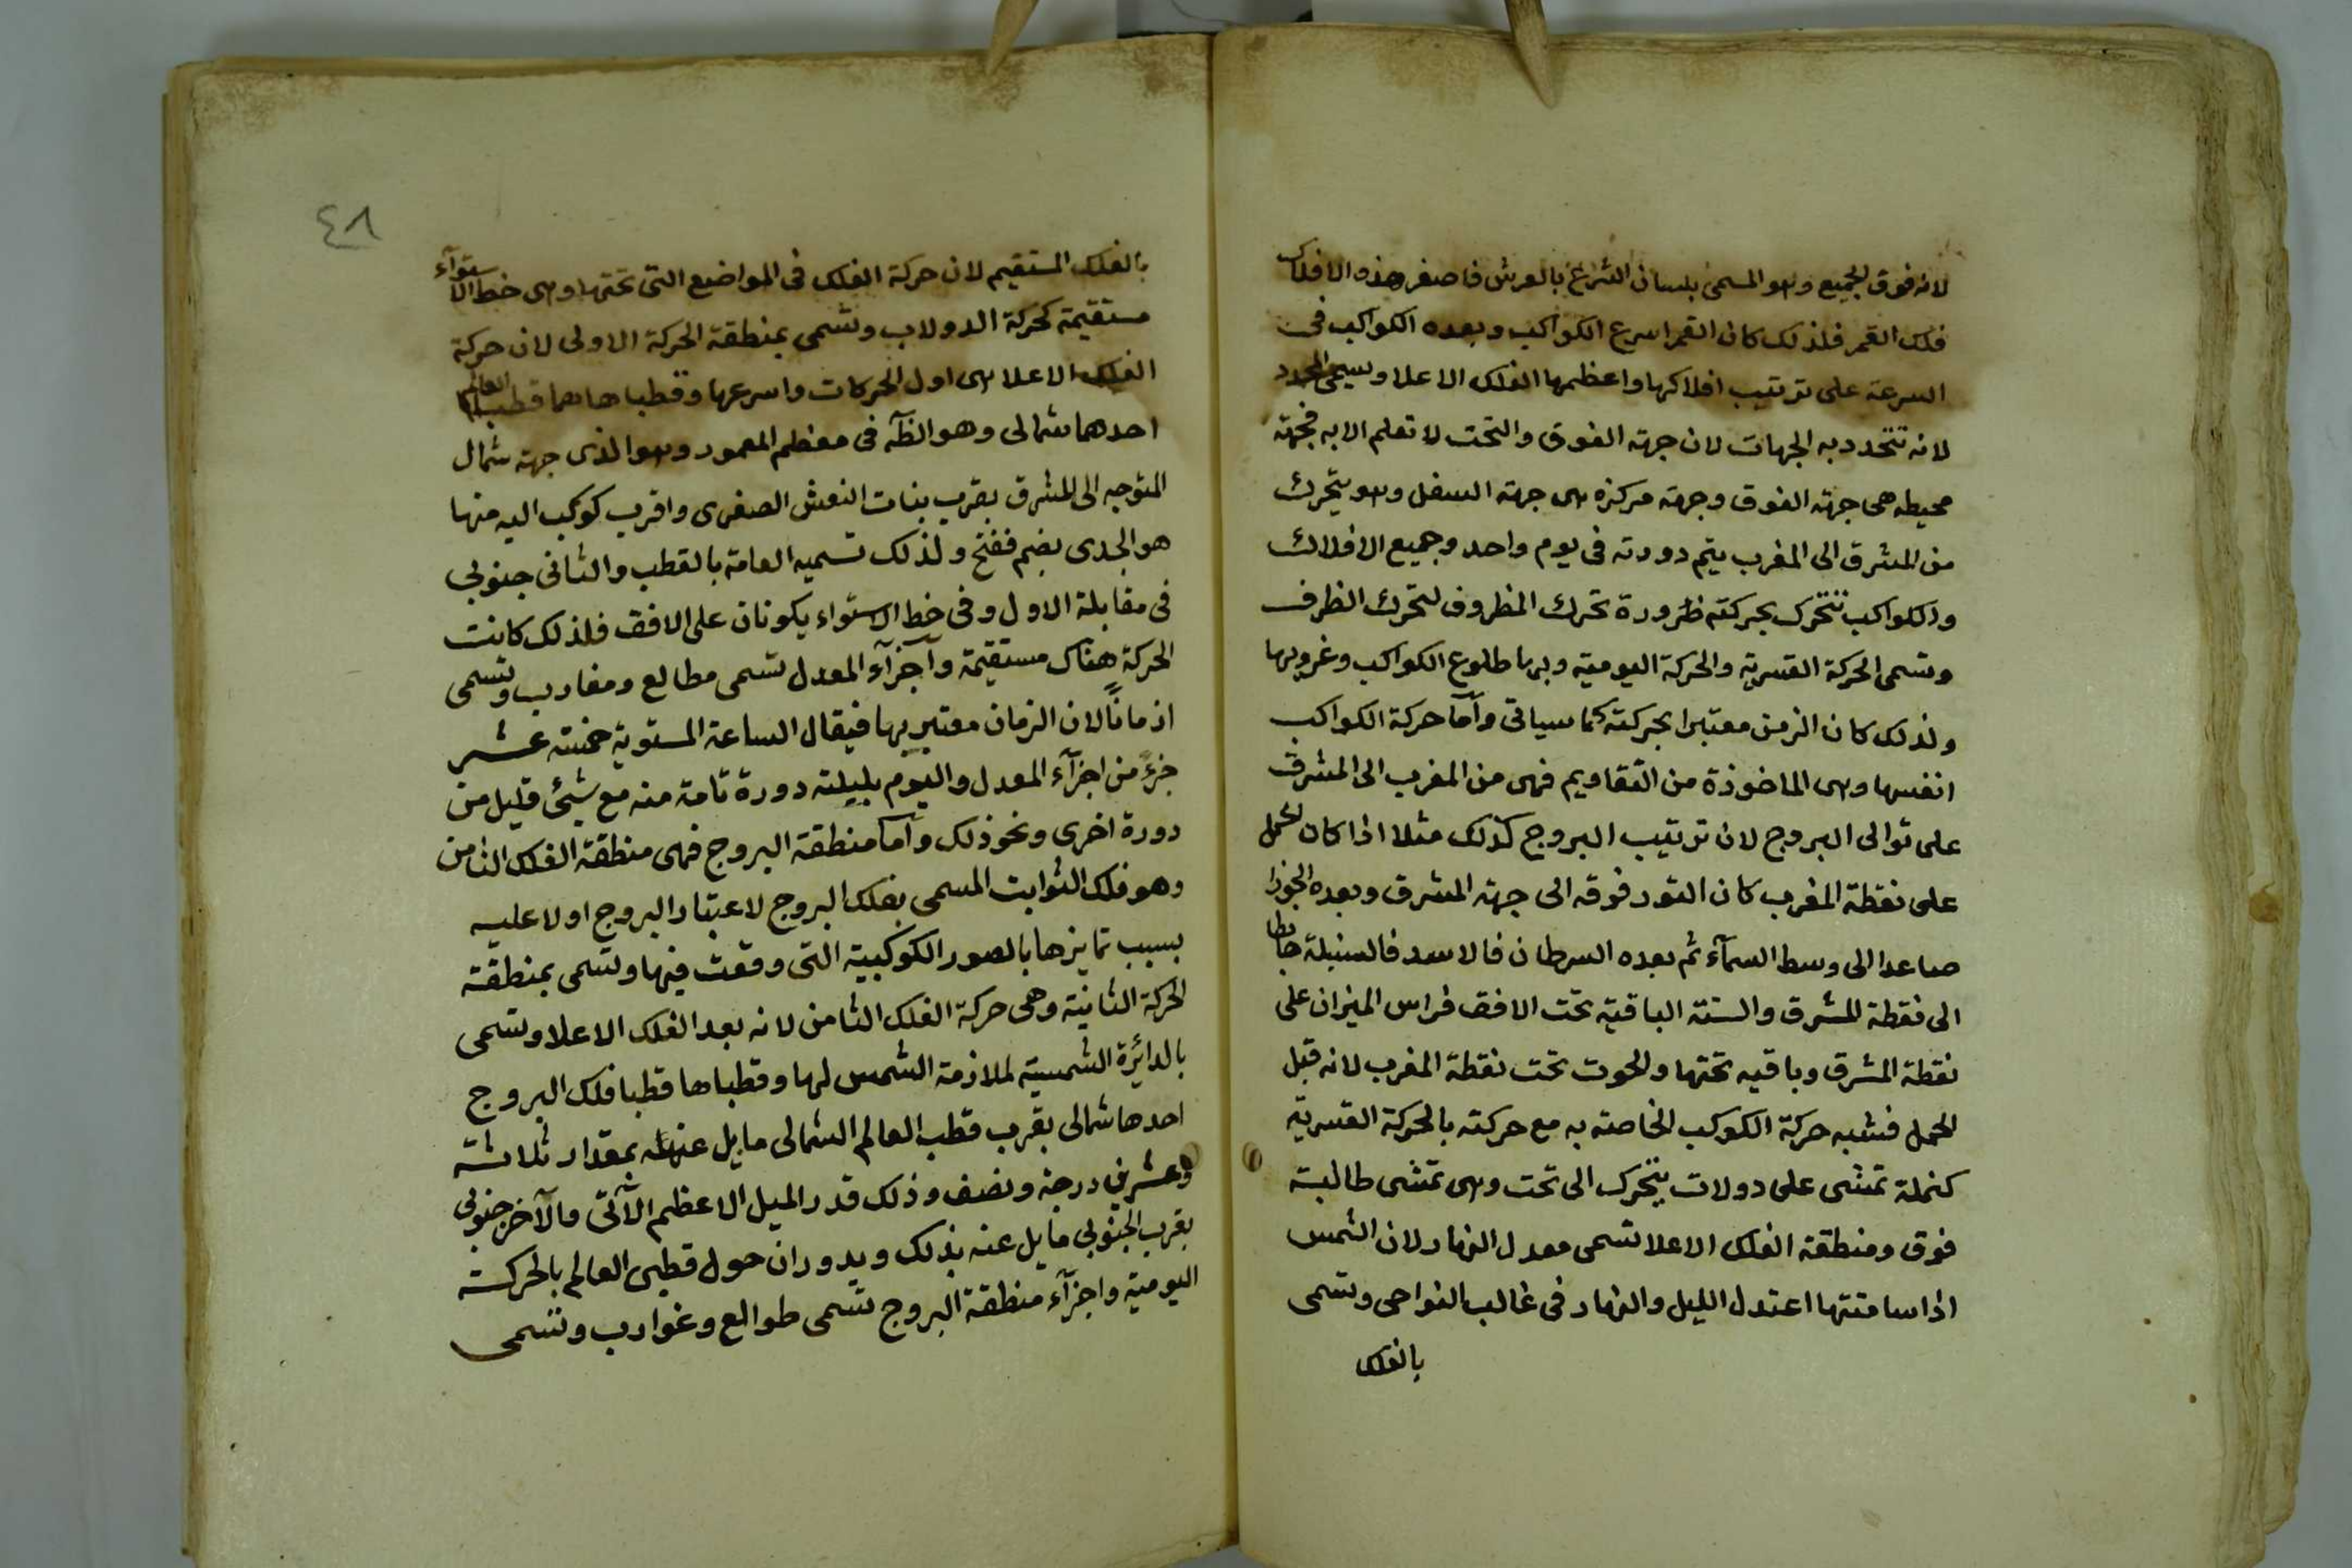 لانه فوق الجميع وهو المسمى بلسان الشرع بالعرش فاصغر هذه الافلاك
فلك القمر فلذلك كان القمر اسرع الكواكب وبعده الكواكب فى
السرعة على ترتيب افلاكها واعظمها الفلك الاعلا ويسمى المحدد
لانه تتحدد به الجهات لان جهة الفوق والتحت لا تعلم الا به فجهة
محيطه هى جهة الفوق وجهة مركزه هى جهة السفل وهو يتحرك
من المشرق الى المغرب يتم دورته فى يوم واحد وجميع الافلاك
والكواكب تتحرك بحركته ضرورة تحرك المظروف لتحرك الظرف
وتسمى الحركة القسرية والحركة اليومية وبها طلوع الكواكب وغروبها
ولذلك كان الزمن معتبرا بحركته كما سياتى وأما حركة الكواكب
انفسها وهى الماخوذة من التقاويم فهى من المغرب الى المشرق
على توالى البروج لان ترتيب البروج كذلك مثلا اذا كان الحمل
على نقطة المغرب كان الثور فوقه الى جهة المشرق وبعده الجوزا
صاعدا الى وسط السمآء ثم بعده السرطان فالاسد فالسنبلة هابطا
الى نقطة المشرق والستة الباقية تحت الافق فراس الميزان على
نقطة المشرق وباقيه تحتها والحوت تحت نقطة المغرب لانه قبل
الحمل فشبه حركة الكوكب الخاصة به مع حركته بالحركة القسرية
كنملة تمشى على دولاب يتحرك الى تحت وهى تمشى طالبة
فوق ومنطقة الفلك الاعلا تسمى معدل النهار لان الشمس
اذا سامتتها اعتدل الليل والنهار فى غالب النواحى وتسمى
بالفلك
٤٨
بالفلك المستقيم لان حركة الفلك فى المواضع التى تحتها وهى خط الاستوآء
مستقيمة كحركة الدولاب وتسمى بمنطقة الحركة الاولى لان حركة
الفلك الاعلا هى اول الحركات واسرعها وقطباها هما قطبا العالم
احدهما شمالى وهو الظآهر فى معظم المعمور وهو الذى جهة شمال
المتوجه الى المشرق بقرب بنات النعش الصغرى واقرب كوكب اليه منها
هو الجدى بضم ففتح ولذلك تسميه العامة بالقطب والثانى جنوبى
فى مقابلة الاول وفى خط الاستواء يكونان على الافق فلذلك كانت
الحركة هناك مستقيمة وأجزآء المعدل تسمى مطالع ومغارب وتسمى
ازمانًا لان الزمان معتبر بها فيقال الساعة المستوية خمسة عشر
جزءً من اجزآء المعدل واليوم بليلته دورة تامة منه مع شئ قليل من
دورة اخرى ونحو ذلك وأما منطقة البروج فهى منطقة الفلك الثامن
وهو فلك الثوابت المسمى بفلك البروج لاعتبار البروج اولا عليه
بسبب تمايزها بالصور الكوكبية التى وقعت فيها وتسمى بمنطقة
الحركة الثانية وهى حركة الفلك الثامن لانه بعد الفلك الاعلا وتسمى
بالدائرة الشمسية لملازمة الشمس لها وقطباها قطبا فلك البروج
احدها شمالى بقرب قطب العالم الشمالى مايل عنه بمقدار ثلاثة
وعشرين درجة ونصف وذلك قدر الميل الاعظم الآتى والآخر جنوبى
بقرب الجنوبى مايل عنه بذلك ويدوران حول قطبى العالم بالحركة
اليومية واجزآء منطقة البروج تسمى طوالع وغوارب وتسمى